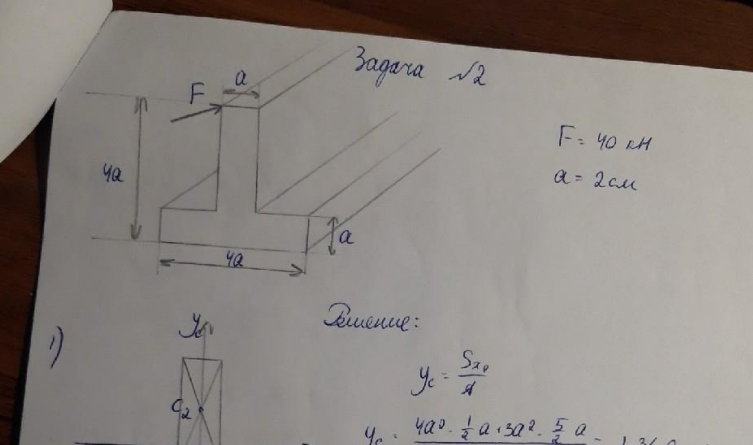 Задача №2
a
F
4a
a
4a
F = 40 кН
a = 2 см
Решение:
1)
y
C2
yc = Sx0 / A
yc = 4a² · 1/2 a + 3a² · 5/2 a